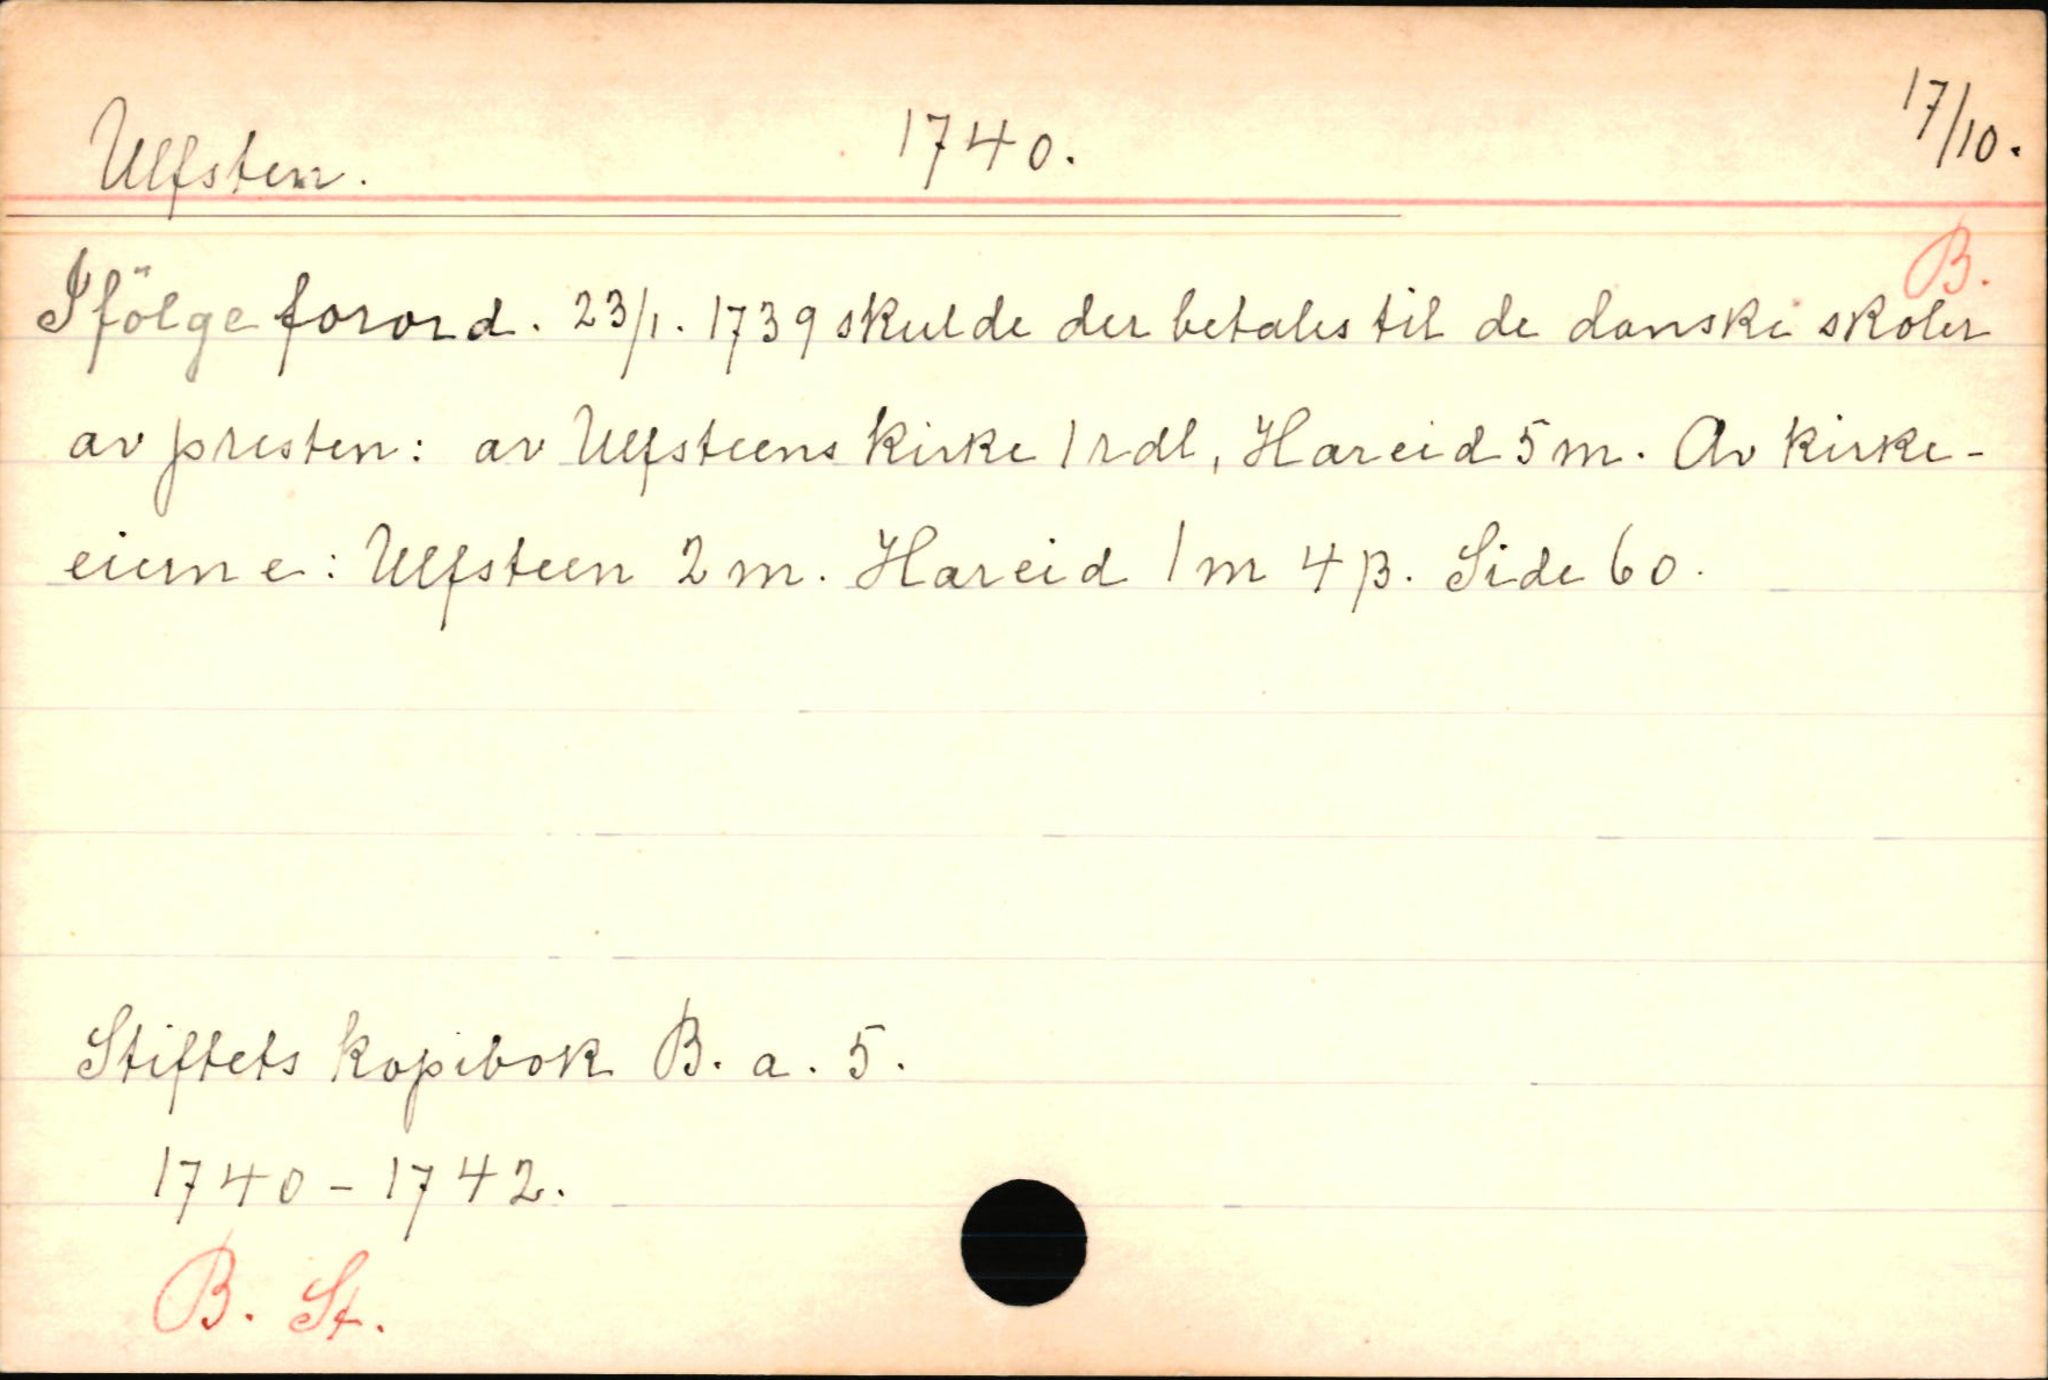 Ulfsten. 1740. 17/10.
B.
Ifölge forord. 23/1. 1739 skulde der betales til de danske skoler
av presten: av Ulfsteens kirke 1 rdl, Hareid 5 m. Av kirke-
eierne: Ulfsteen 2 m. Hareid 1 m 4 β. Side 60.
Stiftets kopibok B. a. 5.
1740 - 1742.
B. St.